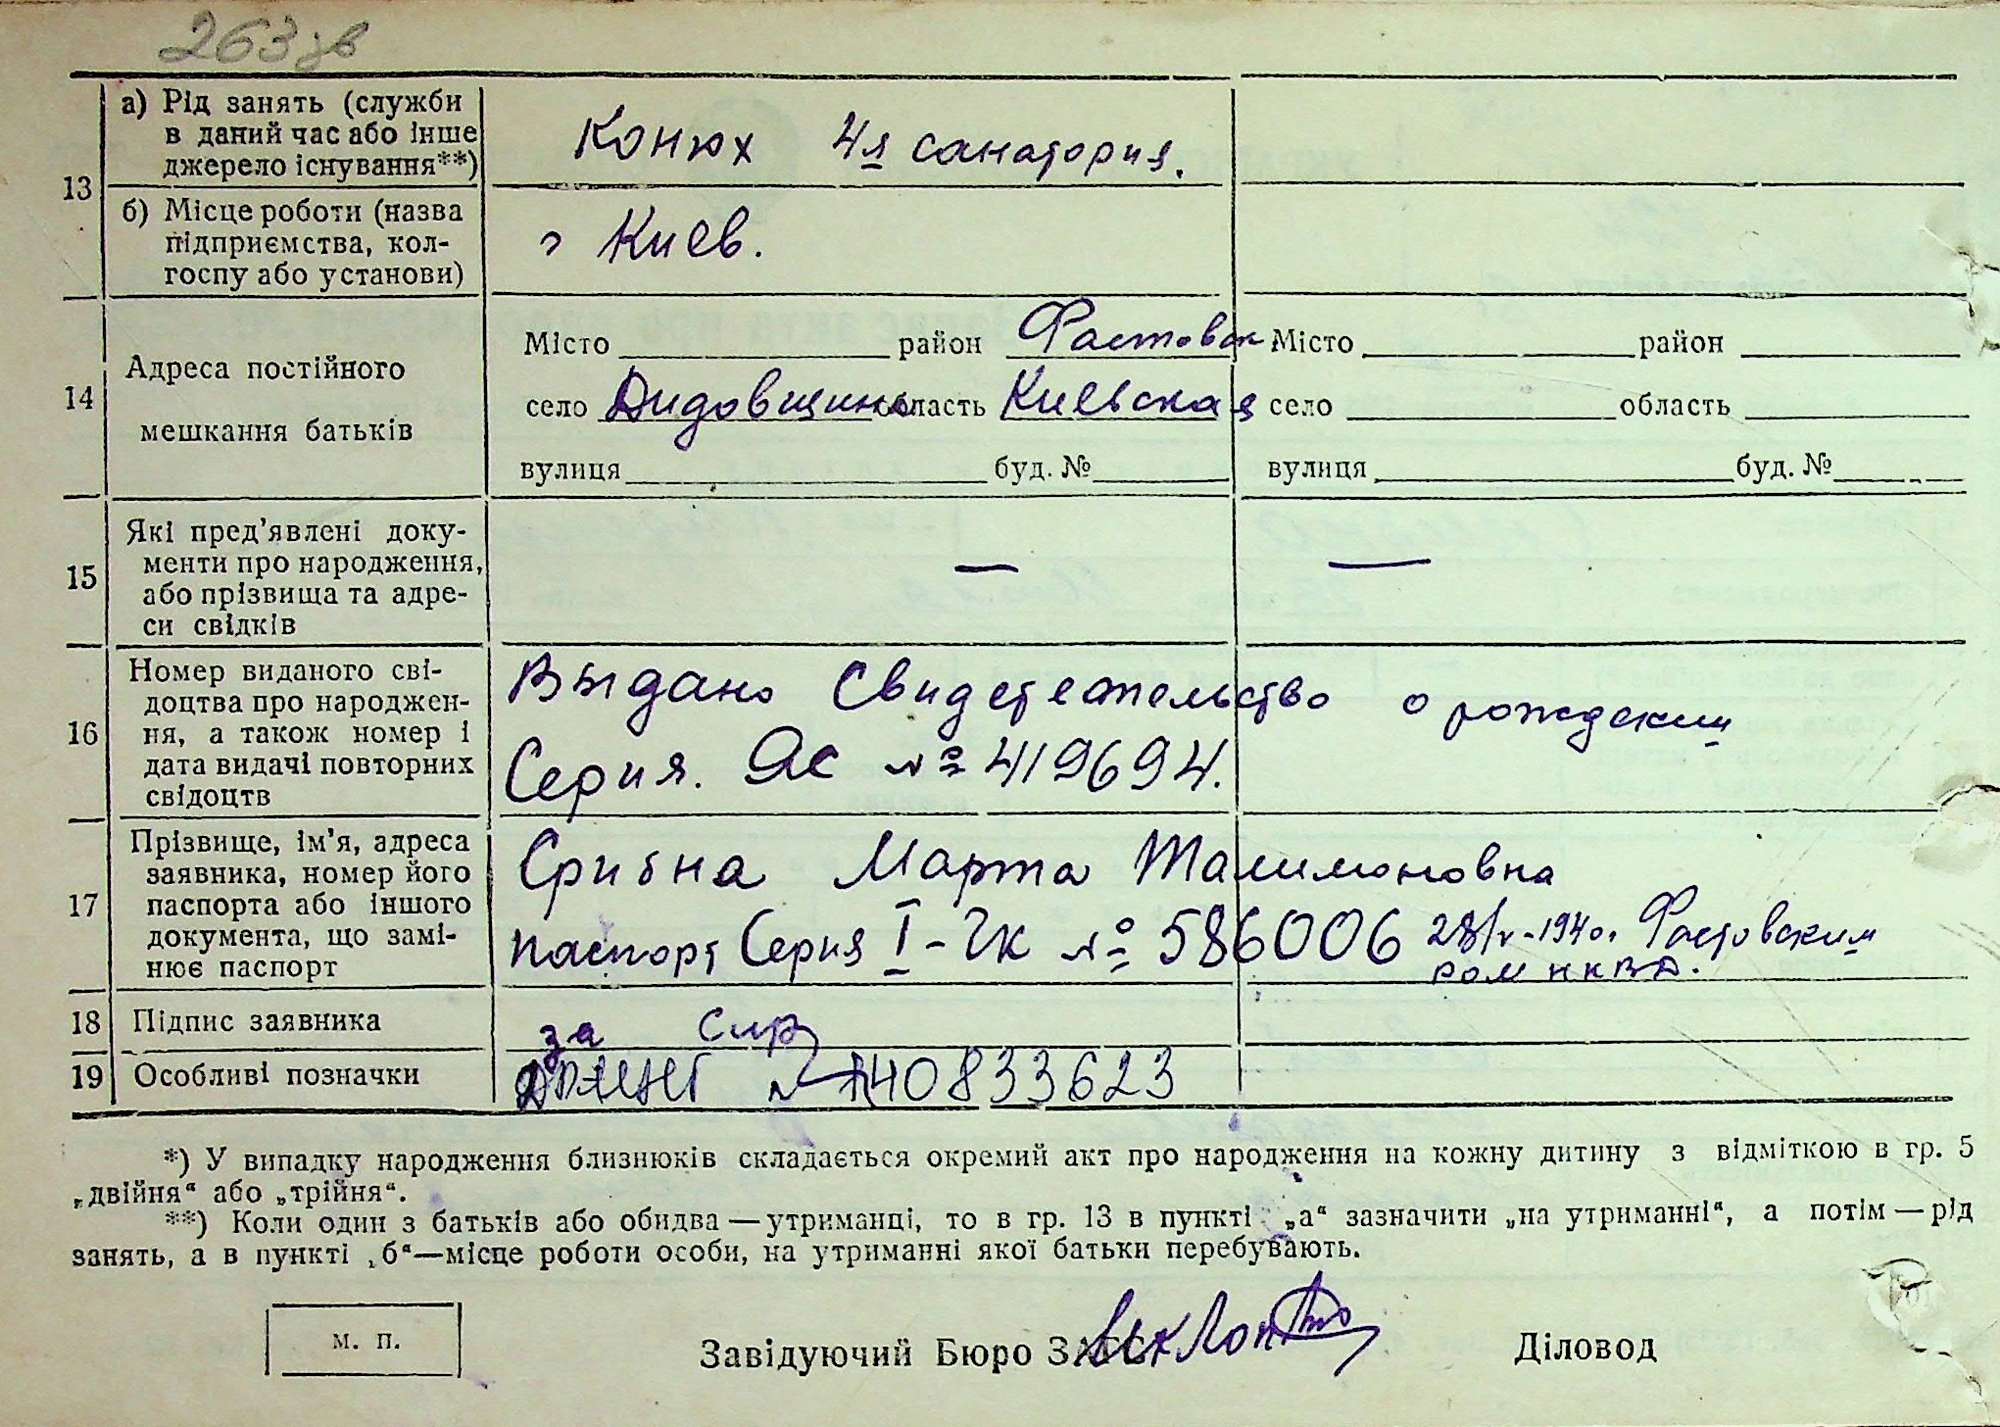 263 зв
13
а) Рід занять (служби
в даний час або інше
джерело існування**)
Конюх 4я санатория.
б) Місце роботи (назва
підприємства, кол-
госпу або установи)
г Киев.
14
Адреса постійного
мешкання батьків
Місто район Фастовск Місто район
село Дидовщина область Киевская село область
вулиця буд. № вулиця буд. №
15
Які пред'явлені доку-
менти про народження,
або прізвища та адре-
си свідків
— —
16
Номер виданого сві-
доцтва про народжен-
ня, а також номер і
дата видачі повторних
свідоцтв
Выдано Свидетеательство о рождении
Серия. ЯС № 419694.
17
Прізвище, ім'я, адреса
заявника, номер його
паспорта або іншого
документа, що замі-
нює паспорт
Срибна Марта Талимоновна
паспорт Серия I-ЧК № 586006 28/V-1940г Фастовским
РОМ НКВД.
18 Підпис заявника
за
19 Особливі позначки
40833623
*) У випадку народження близнюків складається окремий акт про народження на кожну дитину з відміткою в гр. 5
„двійня“ або „трійня“.
**) Коли один з батьків або обидва — утриманці, то в гр. 13 в пункті „а“ зазначити „на утриманні“, а потім — рід
занять, а в пункті „б“—місце роботи особи, на утриманні якої батьки перебувають.
М. П.
Завідуючий Бюро ЗАГС Діловод